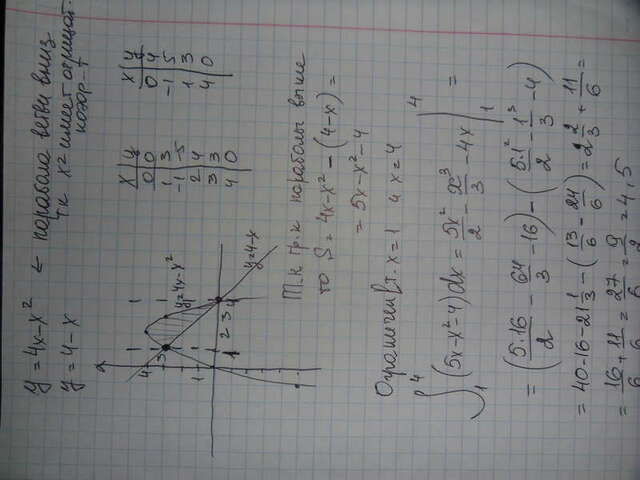 y = 4x - x² ← парабола ветви вниз
y = 4 - x т.к x² имеет отрицат.
коэф-т
x | y
0 | 0
1 | 3
-1 | -5
2 | 4
3 | 3
4 | 0
x | y
0 | 4
-1 | 5
1 | 3
4 | 0
4
3
1
1 2 3 4
y = 4x - x²
y = 4 - x
Т.к гр.к параболы выше
то S = 4x - x² - (4 - x) =
= 5x - x² - 4
Ограничен в т. x = 1 и x = 4
∫₁⁴ (5x - x² - 4) dx = 5x²/2 - x³/3 - 4x |₁⁴ =
= (5·16/2 - 64/3 - 16) - (5·1²/2 - 1³/3 - 4)
= 40 - 16 - 21 1/3 - (13/6 - 24/6) = 2 2/3 + 11/6 =
= 16/6 + 11/6 = 27/6 = 9/2 = 4,5